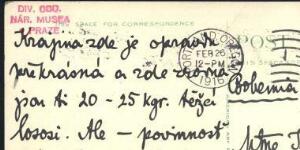 DIV. ODD.
NÁR. MUSEA
PRAZE
SPACE FOR CORRESPONDENCE
Krajina zde je opravdu
překrásná a zde zrovna
jsou ti 20-25 kgr. těžcí
lososi. Ale — povinnost
PORTLAND, OREG.
FEB 26
12-PM
1916
POST
Bohemia